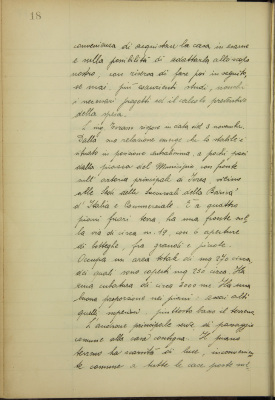 18
convenienza di acquistare la casa in esame
e sulla possibilità di adattarla allo scopo
nostro, con riserva di fare poi in seguito,
se mai, più esaurienti studi, nonché
i necessari progetti ed il calcolo preventivo
della spesa.
L'ing. rispose in data del 3 novembre.
Dalla sua relazione emerge che lo stabile è
situato in posizione centralissima, a pochi passi
dalla piazza del Municipio, con fronte
sull'arteria principale di, vicino
alle Sedi delle Succursali della Banca
d'Italia e Commerciale. È a quattro
piani fuori terra, ha una fronte sul
la via di circa m. 19, con 6 aperture
di botteghe, fra grandi e piccole.
Occupa un'area totale di mq 370 circa,
dei quali sono coperti mq 250 circa. Ha
una cubatura di circa 5000 mc. Ha una
buona proporzione nei piani: assai alti
quelli superiori, piuttosto basso il terreno.
L'androne principale serve di passaggio
comune alla casa contigua. Il piano
terreno ha scarsità di luce, inconvenien
te comune a tutte le case poste nel